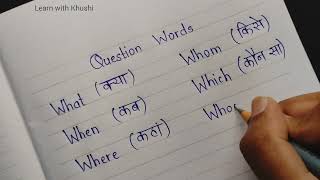 Learn with Khushi
Question Words
What (क्या) Whom (किसे)
When (कब) Which (कौन सा)
Where (कहां) Who